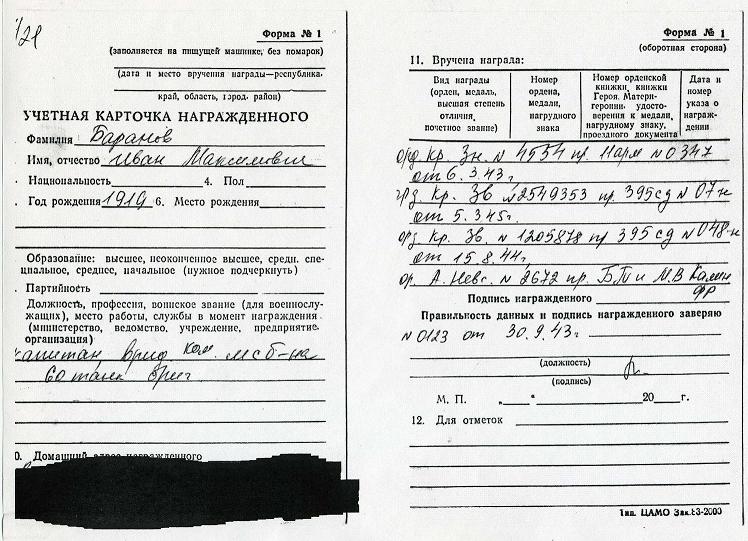 1/21
Форма № 1
(заполняется на пишущей машинке, без помарок)
(дата и место вручения награды—республика,
край, область, город, район)
УЧЕТНАЯ КАРТОЧКА НАГРАЖДЕННОГО
Фамилия Баранов
Имя, отчество Иван Максимович
Национальность 4. Пол
Год рождения 1919 6. Место рождения
Образование: высшее, неоконченное высшее, средн. спе-
циальное, среднее, начальное (нужное подчеркнуть)
Партийность
Должность, профессия, воинское звание (для военнослу-
жащих), место работы, службы в момент награждения
(министерство, ведомство, учреждение, предприятие,
организация)
капитан, врид ком. мсб-на
60 танк бриг
0. Домашний адрес награжденного
Форма № 1
(оборотная сторона)
11. Вручена награда:
Вид награды (орден, медаль, высшая степень отличия, почетное звание)
Номер ордена, медали, нагрудного знака
Номер орденской книжки, книжки Героя, Матери-героини, удосто-верения к медали, нагрудному знаку, проездного документа
Дата и номер указа о награж-дении
орд. Кр. Зн. № 4554 пр. Нарм № 0347
от 6.3.43г.
орд. Кр. Зв №2549353 пр. 395сд № 07-н
от 5.3.45г.
орд. Кр. Зв. № 1205878 пр 395 сд № 048-н
от 15.8.44г.
ор. А. Невс. № 2672 пр. БТ и МВ Калин
Подпись награжденного фр
Правильность данных и подпись награжденного заверяю
№ 0123 от 30.9.43г.
(должность)
(подпись)
М. П. „ “ 20 г.
12. Для отметок
Тип. ЦАМО Зак.83-2000